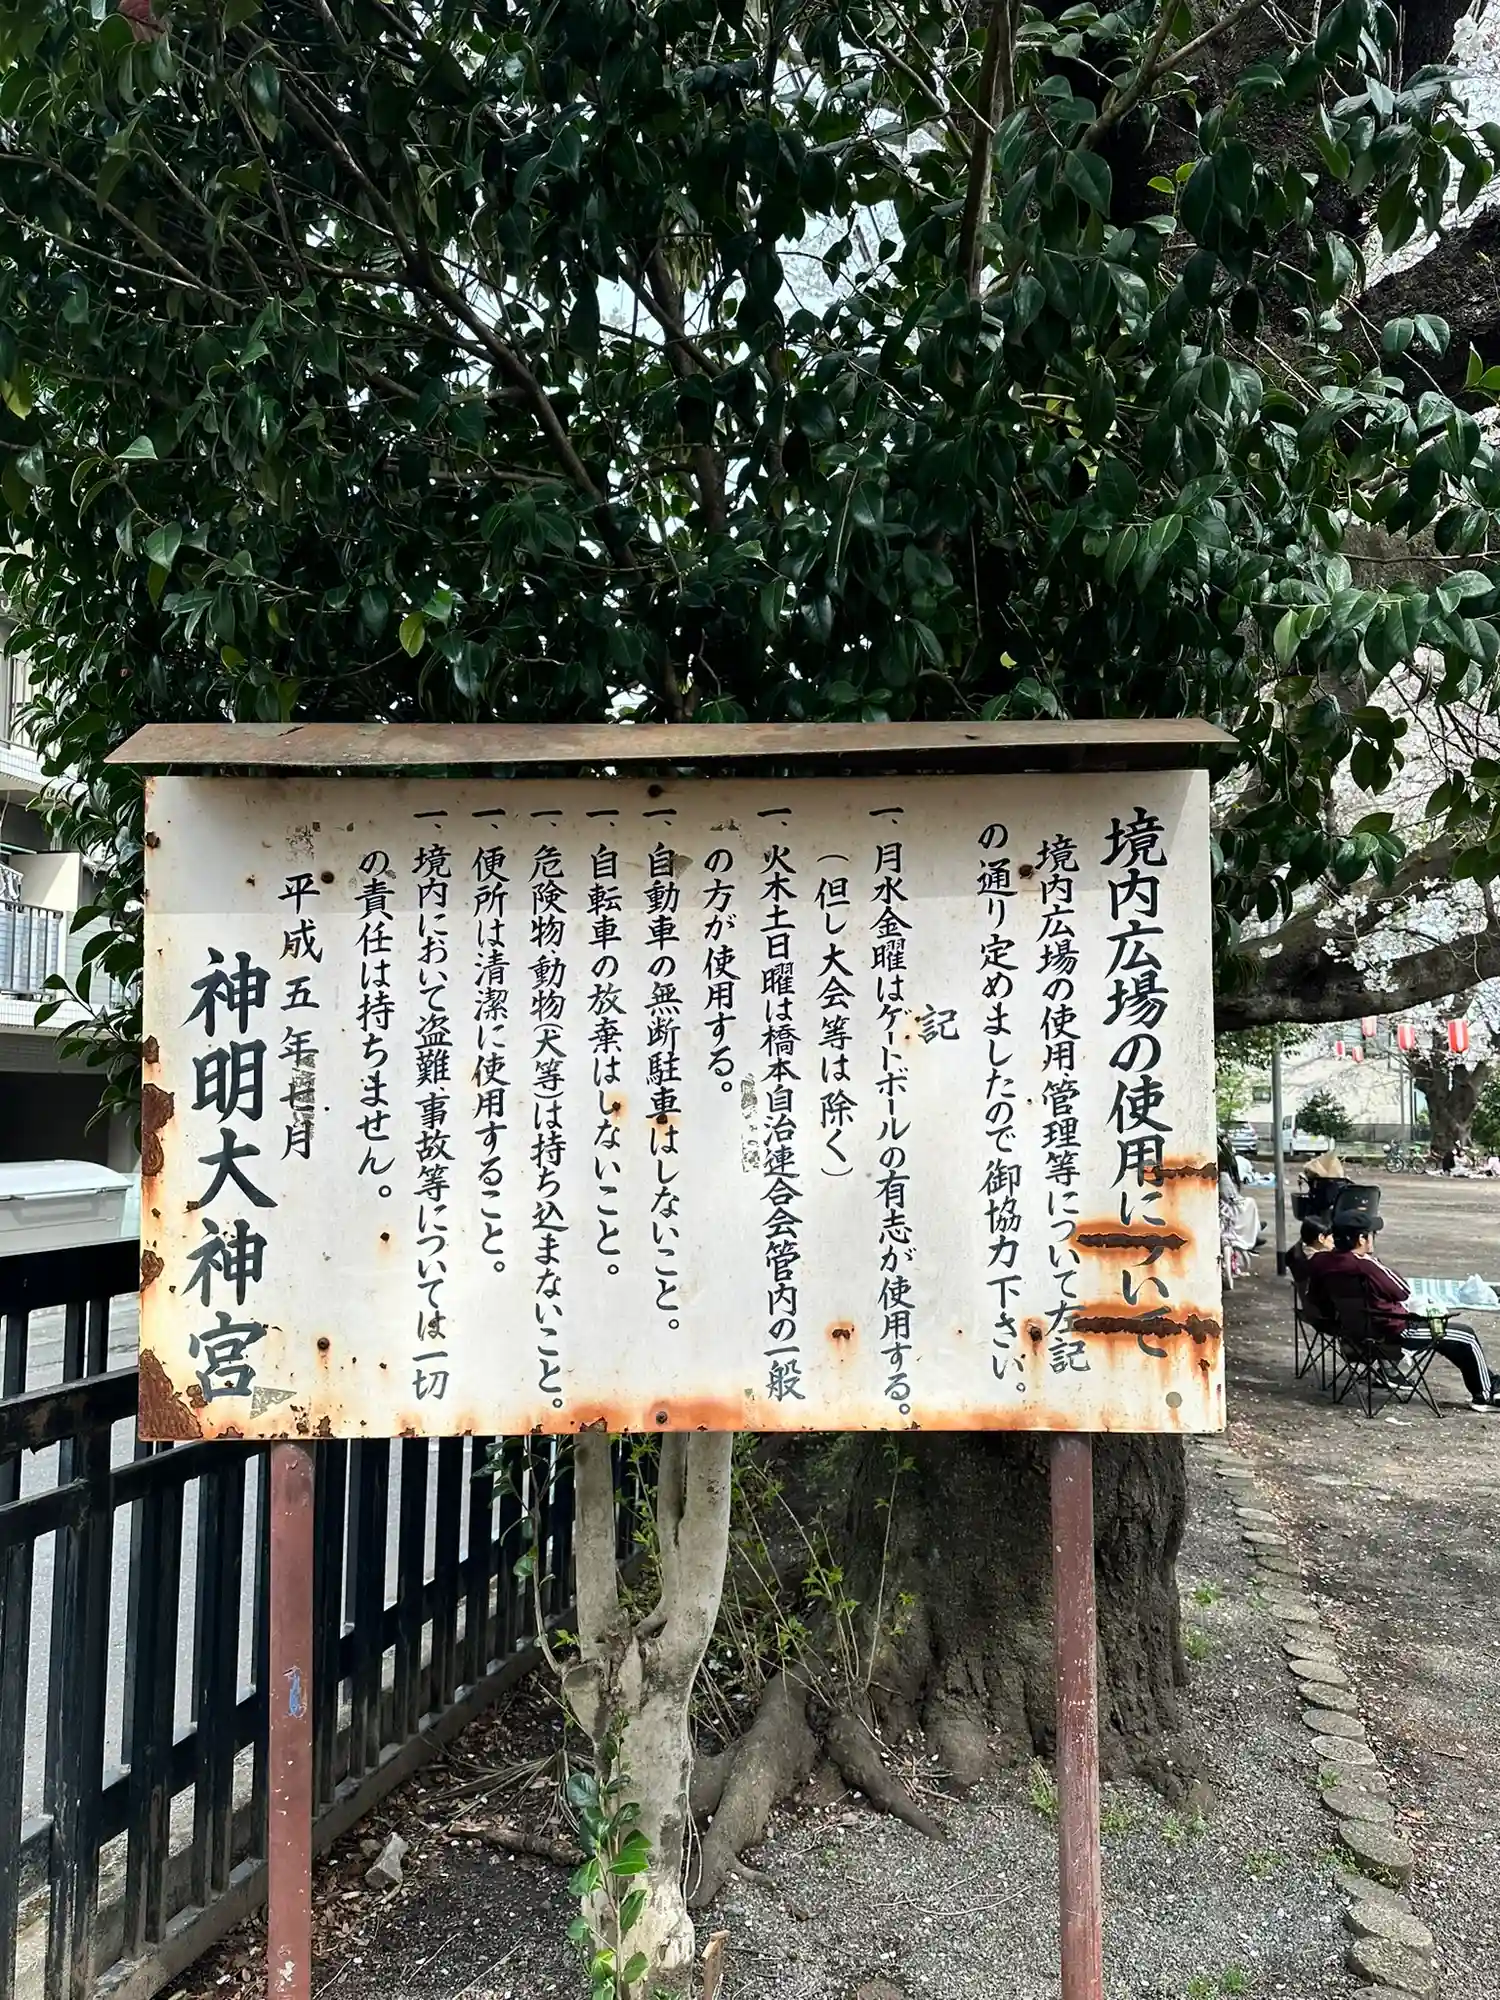 境内広場の使用について
境内広場の使用、管理等について左記
の通り定めましたので御協力下さい。
記
一、月水金曜はゲートボールの有志が使用する。
(但し大会等は除く)
一、火木土日曜は橋本自治連合会管内の一般
の方が使用する。
一、自動車の無断駐車はしないこと。
一、自転車の放棄はしないこと。
一、危険物動物(犬等)は持ち込まないこと。
一、便所は清潔に使用すること。
一、境内において盗難、事故等については一切
の責任は持ちません。
平成五年七月
神明大神宮